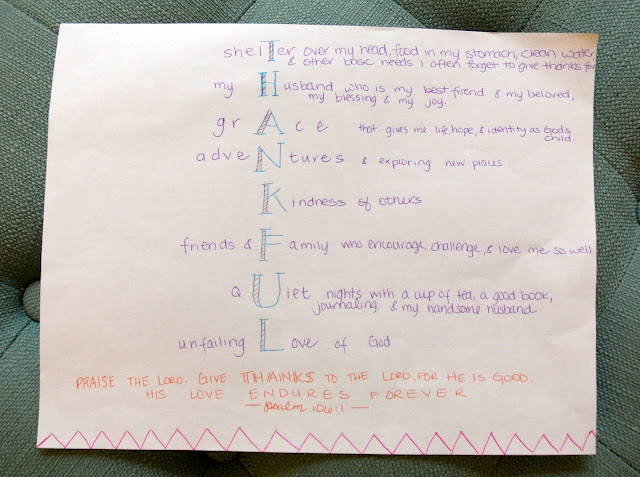 shelTer over my head, food in my stomach, clean water
& other basic needs I often forget to give thanks for
my Husband who is my best friend & my beloved,
my blessing & my joy.
grAce that gives me life, hope, & identity as God's
child.
adveNtures & exploring new places
Kindness of others
friends & Family who encourage, challenge, & love me so well
QUiet nights with a cup of tea, a good book,
journaling, & my handsome husband
unfailing Love of God
PRAISE THE LORD. GIVE THANKS TO THE LORD, FOR HE IS GOOD.
HIS LOVE ENDURES FOREVER
— Psalm 106:1 —